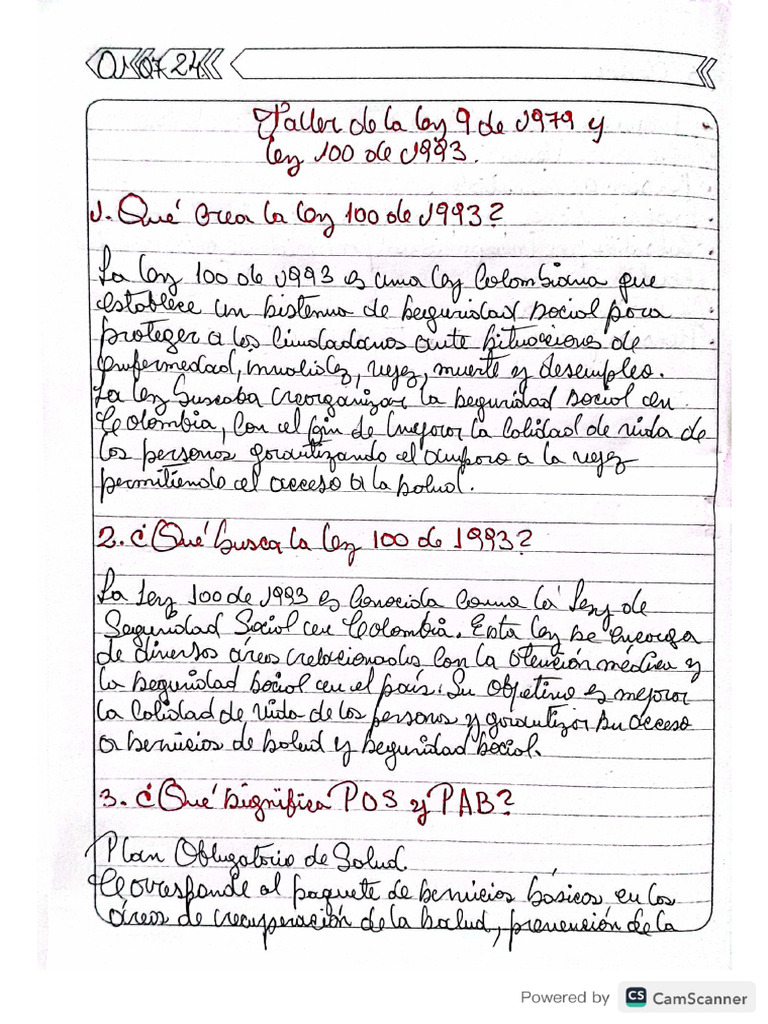 01 07 24
Taller de la ley 9 de 1979 y
ley 100 de 1993.
1. Qué crea la ley 100 de 1993?
La ley 100 de 1993 es una ley Colombiana que
establece un sistema de seguridad social para
proteger a los ciudadanos ante situaciones de
enfermedad, invalidez, vejez, muerte y desempleo.
La ley buscaba reorganizar la seguridad social en
Colombia, con el fin de mejorar la calidad de vida de
las personas garantizando el amparo a la vejez
permitiendo el acceso a la salud.
2. ¿Qué busca la ley 100 de 1993?
La ley 100 de 1993 es conocida como la ley de
Seguridad Social en Colombia. Esta ley se encarga
de diversos áreas relacionadas con la atención médica y
la seguridad social en el país. Su objetivo es mejorar
la calidad de vida de las personas y garantizar su acceso
a servicios de salud y seguridad social.
3. ¿Qué significa POS y PAB?
Plan Obligatorio de Salud.
Corresponde al paquete de servicios básicos en las
áreas de recuperación de la salud, prevención de la
Powered by CS CamScanner